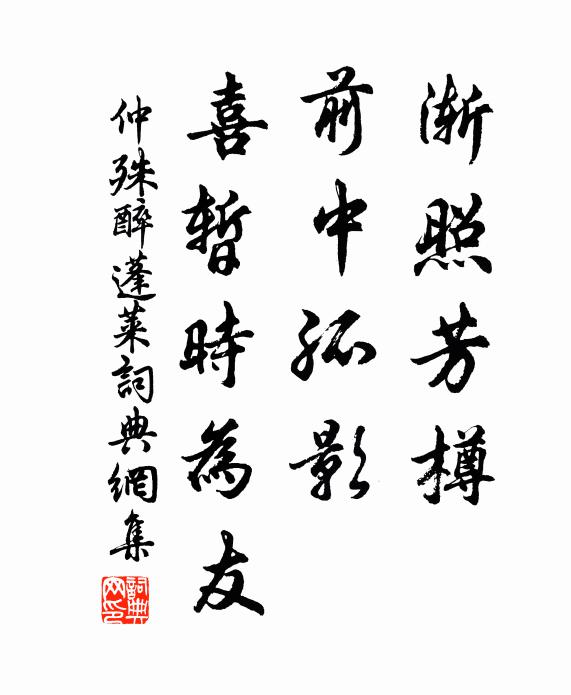 漸照芳樽
前中孤影
喜暫時為友
仲殊醉蓬萊詞典網集
詞典网印